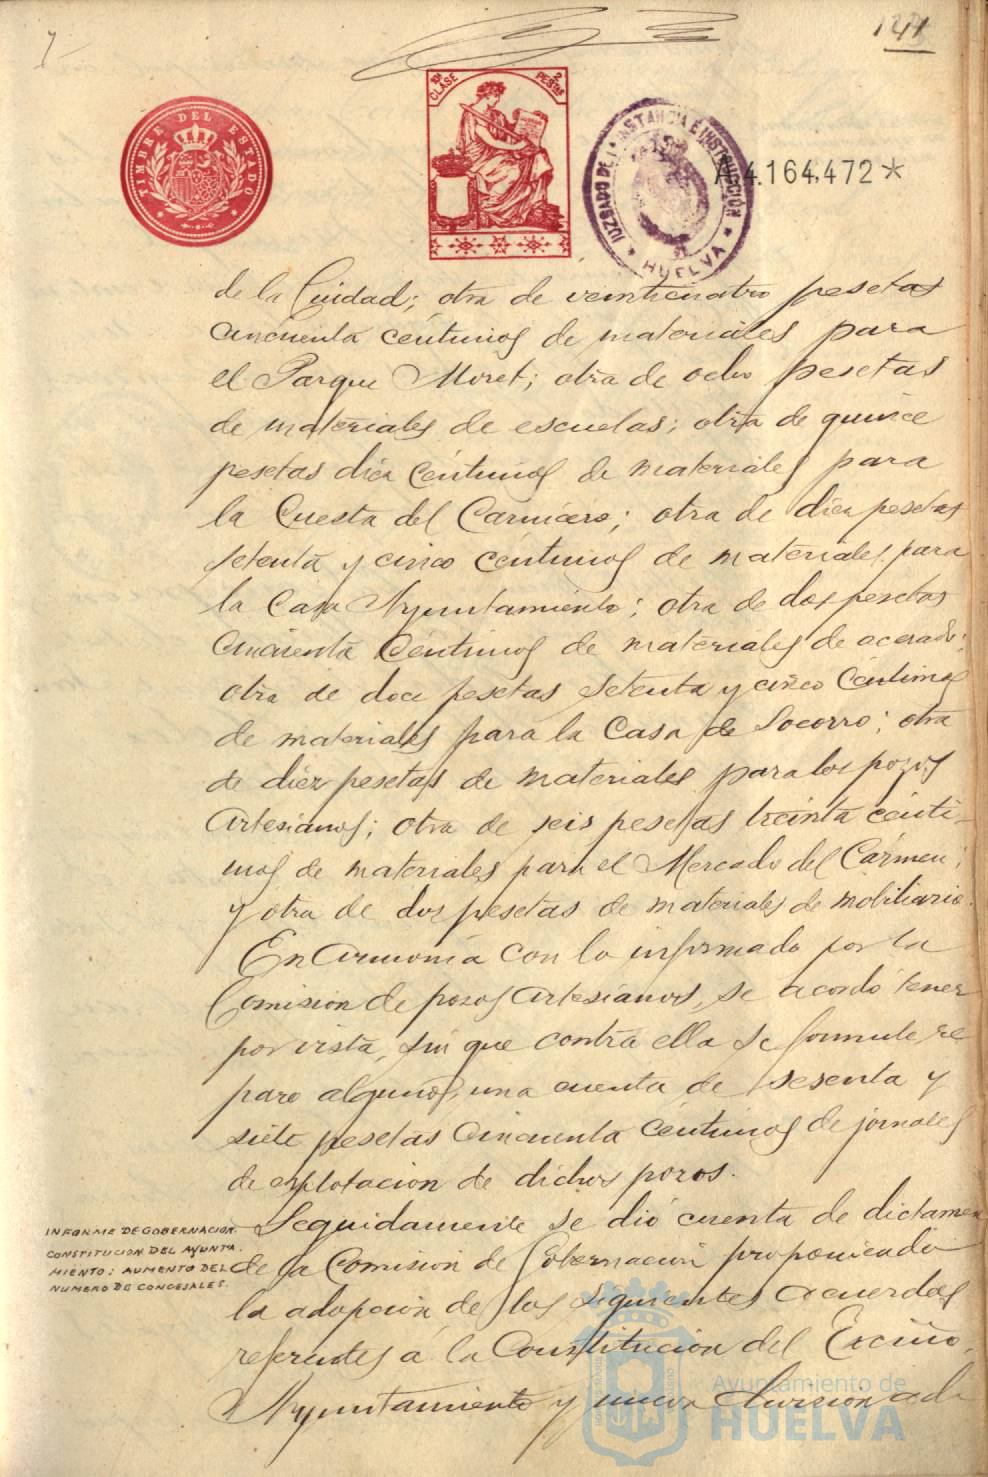 141
TIMBRE DEL ESTADO
10ª CLASE
2 PESETAS
JUZGADO DE 1ª INSTANCIA E INSTRUCCIÓN
HUELVA
A 4.164,472 *
de la Ciudad; otra de veinticuatro pesetas
cincuenta céntimos de materiales para
el Parque Moret; otra de ocho pesetas
de materiales de escuelas; otra de quince
pesetas diez céntimos de materiales para
la Cuesta del Carnicero; otra de diez pesetas
setenta y cinco céntimos de materiales para
la Casa Ayuntamiento; otra de dos pesetas
cincuenta céntimos de materiales de acerado;
otra de doce pesetas setenta y cinco céntimos
de materiales para la Casa de Socorro; otra
de diez pesetas de materiales para los pozos
Artesianos; otra de seis pesetas treinta cénti-
mos de materiales para el Mercado del Cármen;
y otra de dos pesetas de materiales de mobiliario.
En armonía con lo informado por la
Comisión de pozos Artesianos, se acordó tener
por vista, sin que contra ella se formule re
paro alguno, una cuenta de sesenta y
siete pesetas cincuenta céntimos de jornales
de explotación de dichos pozos.
INFORME DE GOBERNACION.
CONSTITUCION DEL AYUNTA.
MIENTO: AUMENTO DEL
NUMERO DE CONCEJALES.
Seguidamente se dió cuenta de dictamen
de la Comisión de Gobernación proponiendo
la adopción de los siguientes acuerdos
referentes á la Constitución del Excmo.
Ayuntamiento y nueva división
Ayuntamiento de
HUELVA